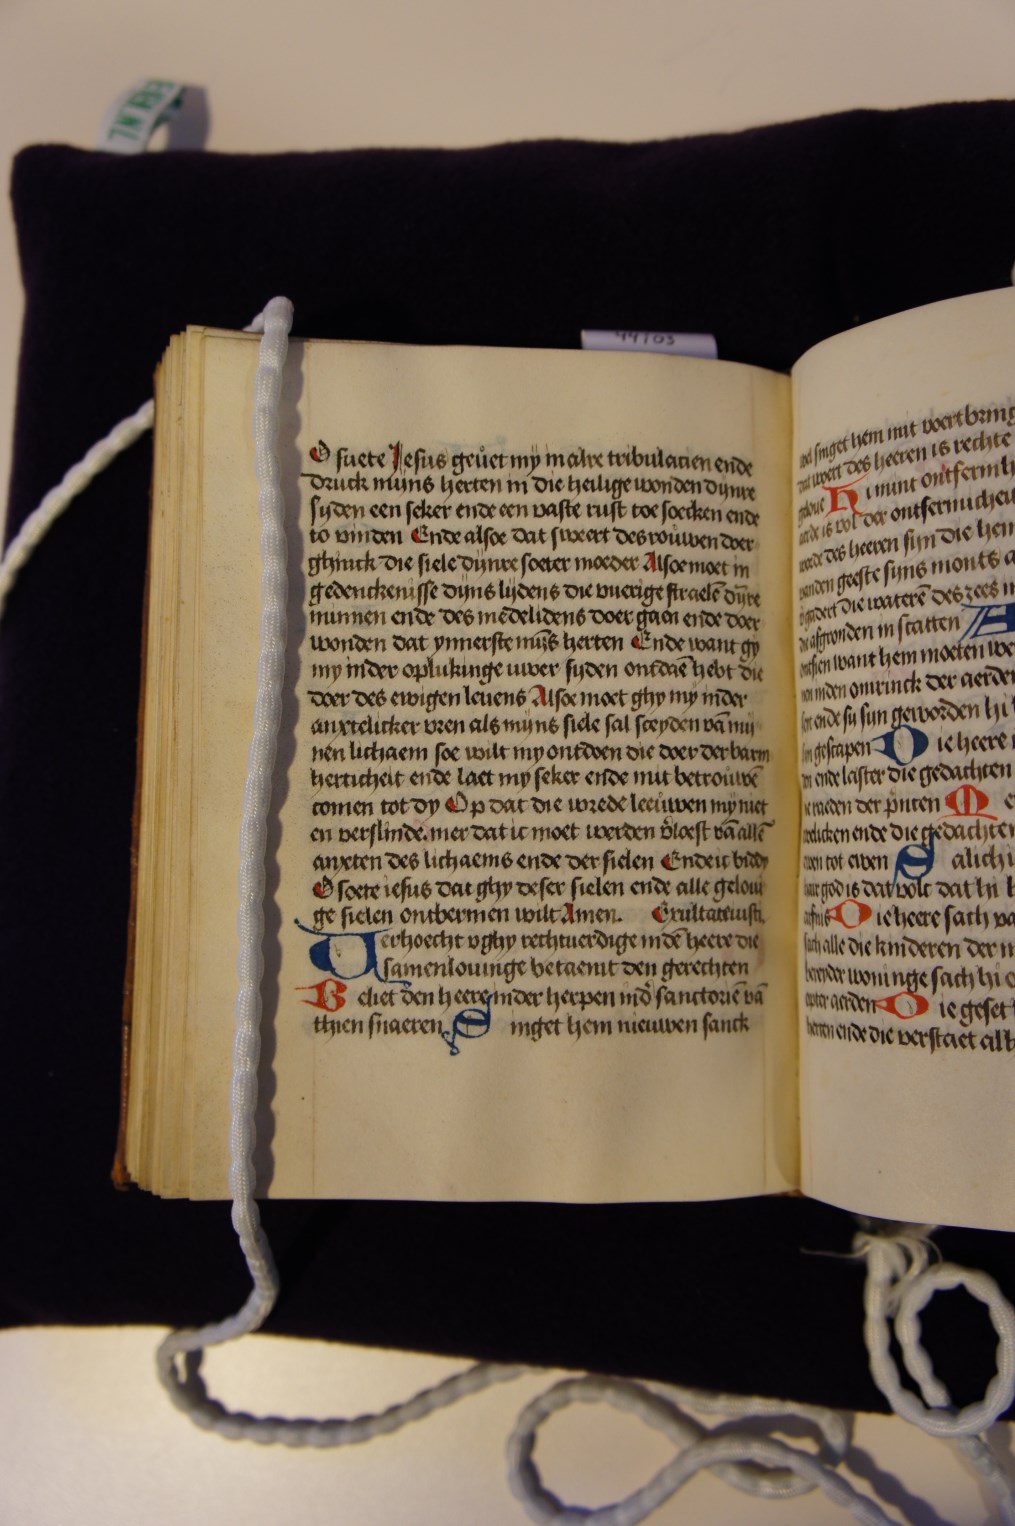 O suete Jesus geuet my in alre tribulacien ende
druck mijns herten in die heilige wonden dijnre
syden een seker ende een vaste rust toe soecken ende
to vinden Ende alsoe dat sweert des rouwen doer
ghinck die siele dijnre soeter moeder Alsoe moet in
gedenckenisse dijns lijdens die vuerige straelē dijre
minnen ende des mēdelidens doer gaen ende doer
wonden dat ynnerste mijs herten Ende want gy
my inder oplukinge uwer syden ontdaē hebt die
doer des ewigen leuens Alsoe moet ghy my inder
anxtelicker vren als mijns siele sal sceyden vā mij
nen lichaem soe wilt my ontdoen die doer der barm
herticheit ende laet my seker ende mit betrouwē
comen tot dy Op dat die wrede leeuwen my niet
en verslinde. mer dat ic moet werden v̄loest vā allē
anxten des lichaems ende der sielen Ende ic bidde
O soete iesus dat ghy deser sielen ende alle geloui
ge sielen ontbermen wilt Amen. Exultate iusti
Verhoecht v ghy rechtuerdige in dē heere die
samenlouinge betaemt den gerechten
Beliet den heere inder herpen ind̄ sanctoriē vā
thien snaeren Singet hem nieuwen sanck
wel singet hem mit voertbring
dat woert des heeren is rechte
geloue Hi mint ontfermh
aerde is vol der ontfermicheit
woerde des heeren sijn die hem
vanden geeste sijns monts
vgadert die waterē des zees
die afgronden in scatten A
ontsien want hem moeten we
inden omrinck der aerden
ende sy sijn geworden hi
gescapen Die heere
ende lastert die gedachten
raeden der prīten M
ende die gedachten
ewen tot ewen Salich
haer god is dat volc dat hi
Die heere sach va
sach alle die kinderen der m
bereyder woninge sach hi
aerden Die geset
herten ende die verstaet alle